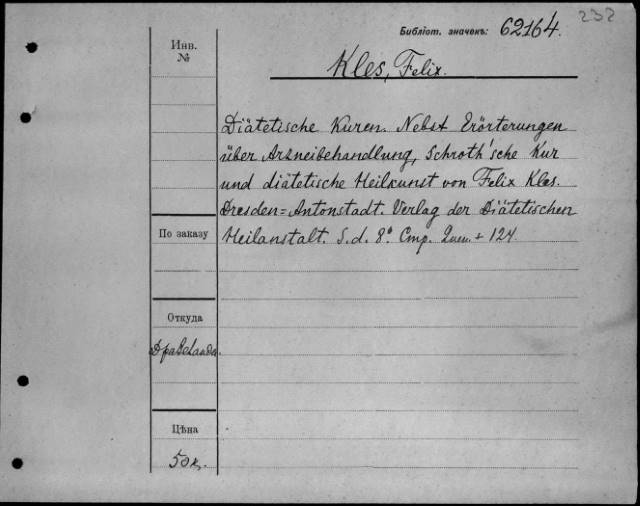 232
Библіот. значекъ: 62164.
Инв. №
Kles, Felix.
Diätetische Kuren. Nebst Erörterungen
über Arzneibehandlung, Schroth'sche Kur
und diätetische Heilkunst von Felix Kles.
Dresden=Antonstadt. Verlag der Diätetischen
Heilanstalt. S.d. 8º. Стр. 2нен. + 124.
По заказу
Откуда
Цѣна
50к.